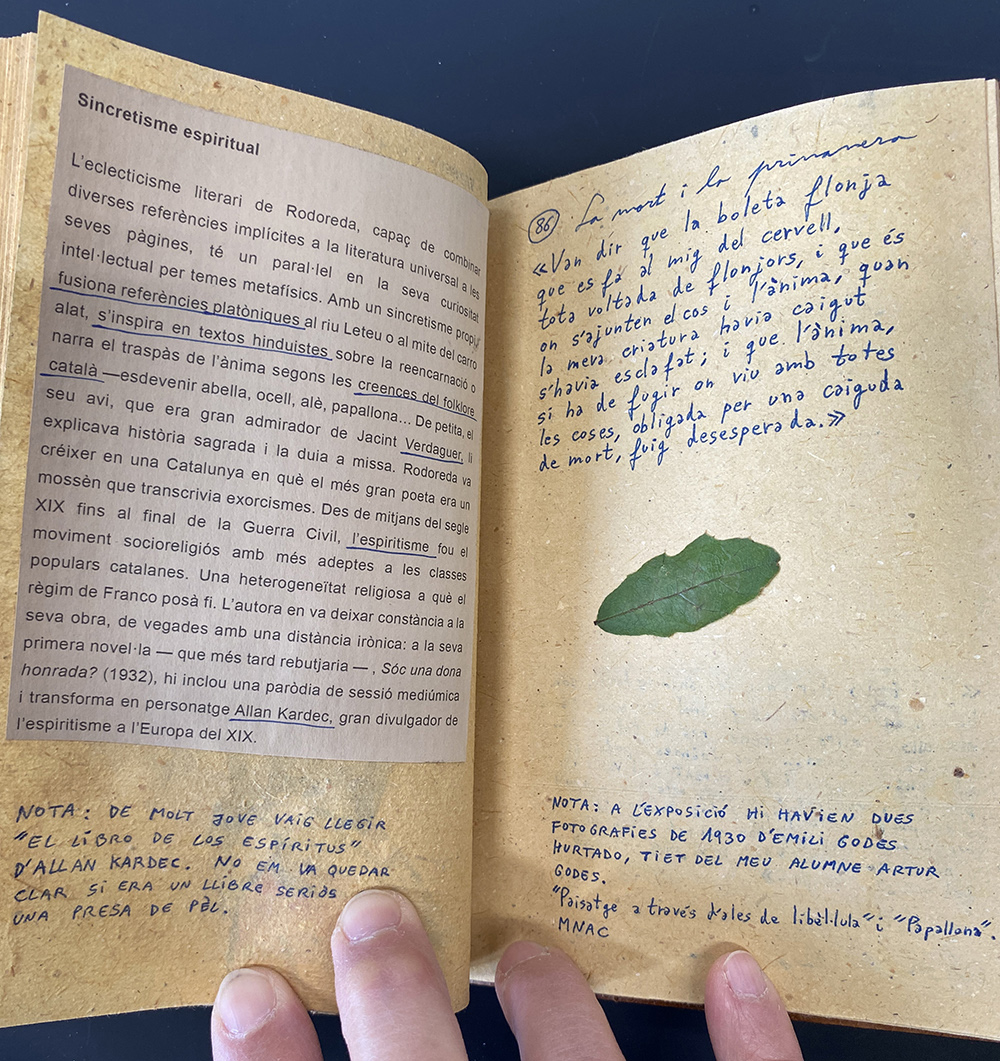 Sincretisme espiritual
L'eclecticisme literari de Rodoreda, capaç de combinar
diverses referències implícites a la literatura universal a les
seves pàgines, té un paral·lel en la seva curiositat
intel·lectual per temes metafísics. Amb un sincretisme propi,
fusiona referències platòniques al riu Leteu o al mite del carro
alat, s'inspira en textos hinduistes sobre la reencarnació o
narra el traspàs de l'ànima segons les creences del folklore
català —esdevenir abella, ocell, alè, papallona... De petita, el
seu avi, que era gran admirador de Jacint Verdaguer, li
explicava història sagrada i la duia a missa. Rodoreda va
créixer en una Catalunya en què el més gran poeta era un
mossèn que transcrivia exorcismes. Des de mitjans del segle
XIX fins al final de la Guerra Civil, l'espiritisme fou el
moviment socioreligiós amb més adeptes a les classes
populars catalanes. Una heterogeneïtat religiosa a què el
règim de Franco posà fi. L'autora en va deixar constància a la
seva obra, de vegades amb una distància irònica: a la seva
primera novel·la — que més tard rebutjaria — , Sóc una dona
honrada? (1932), hi inclou una paròdia de sessió mediúmica
i transforma en personatge Allan Kardec, gran divulgador de
l'espiritisme a l'Europa del XIX.
NOTA: DE MOLT JOVE VAIG LLEGIR
"EL LIBRO DE LOS ESPÍRITUS"
D'ALLAN KARDEC. NO EM VA QUEDAR
CLAR SI ERA UN LLIBRE SERIÓS
UNA PRESA DE PÈL.
86 La mort i la primavera
«Van dir que la boleta flonja
que es fa al mig del cervell,
tota voltada de flonjors, i que és
on s'ajunten el cos i l'ànima, quan
la meva criatura havia caigut
s'havia esclafat; i que l'ànima,
si ha de fugir on viu amb totes
les coses, obligada per una caiguda
de mort, fuig desesperada.»
NOTA: A L'EXPOSICIÓ HI HAVIEN DUES
FOTOGRAFIES DE 1930 D'EMILI GODES
HURTADO, TIET DEL MEU ALUMNE ARTUR
GODES.
"Paisatge a través d'ales de libèl·lula" i "Papallona".
MNAC